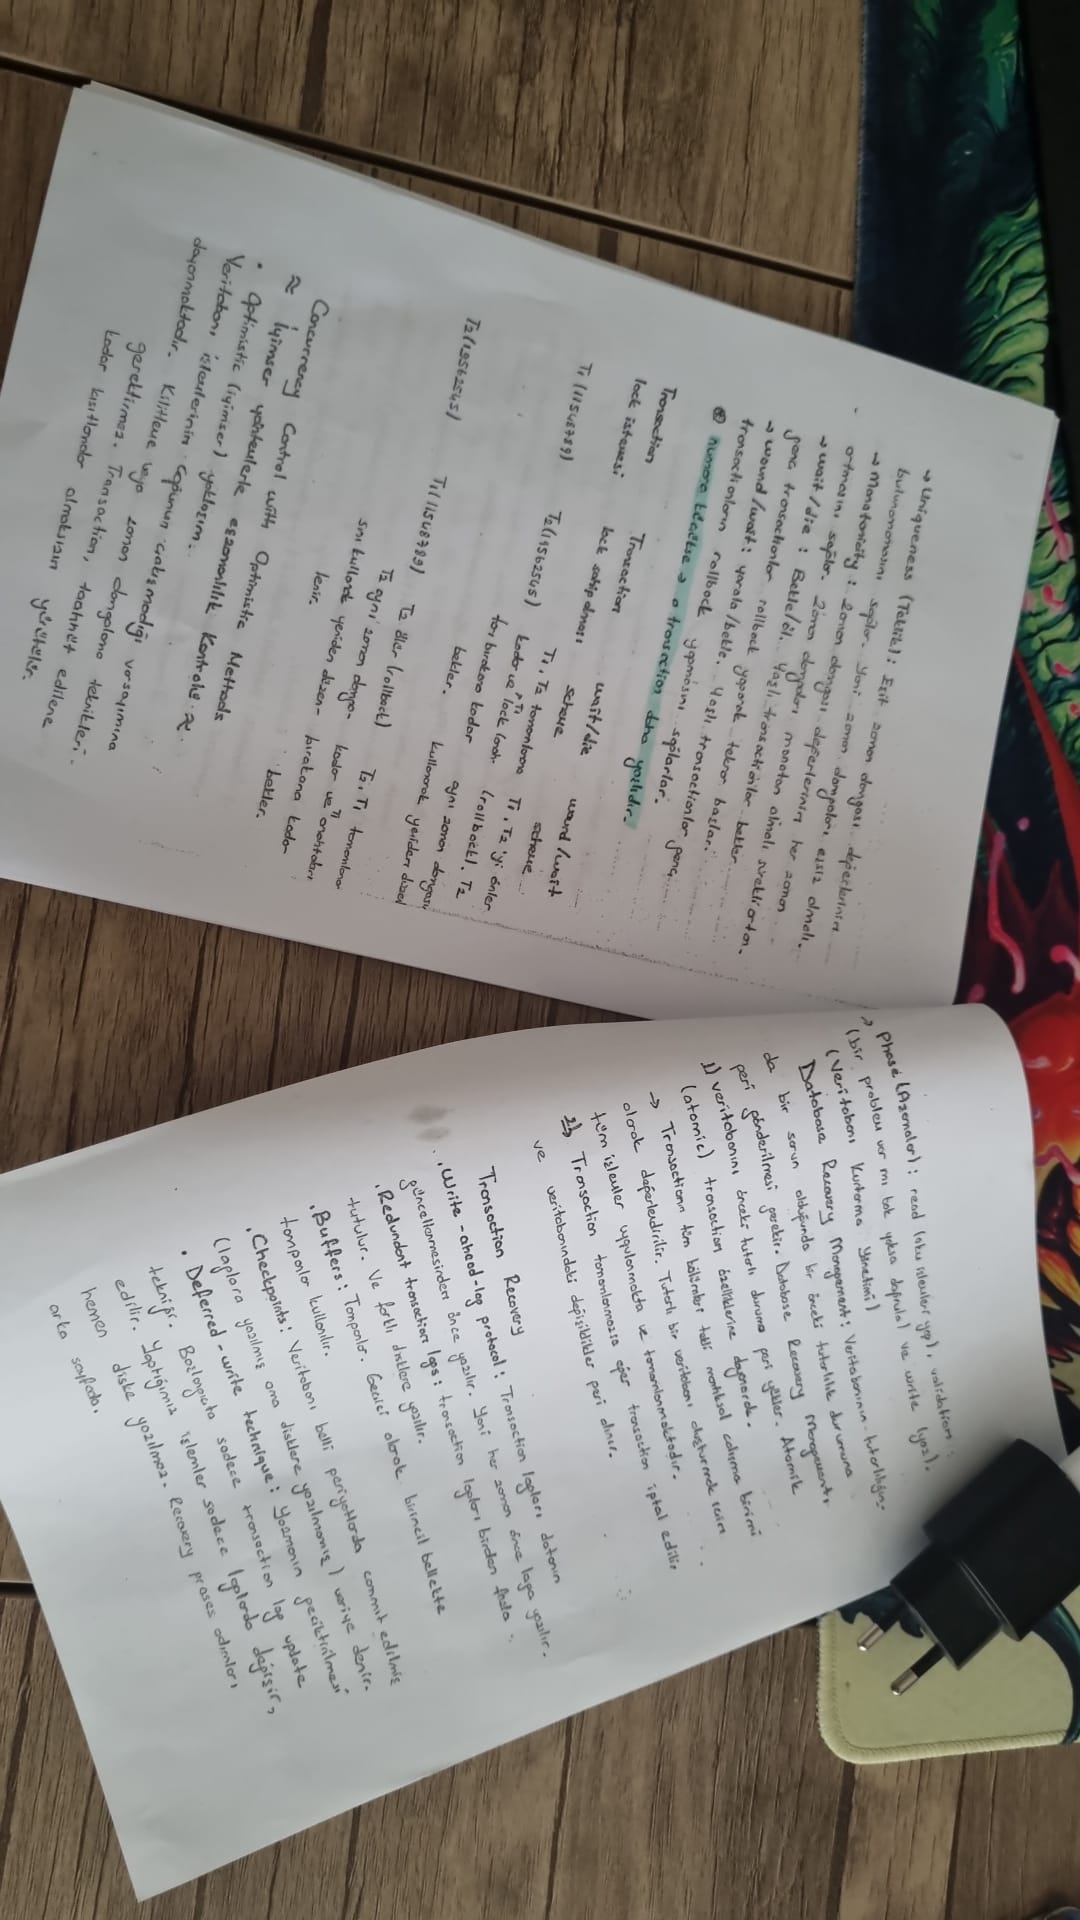 → Uniqueness (Teklik): Eşit zaman dangası değerlerinin
bulunmamasını sağlar. Yani zaman damgaları eşsiz olmalı.
→ Monotonicity: Zaman dangası değerlerinin her zaman
artmasını sağlar. Zaman dangaları monoton olmalı sürekli artan.
→ wait/die: Bekle/öl. Yaşlı transactionlar bekler
genç transactionlar rollback yaparak tekrar başlar.
→ wound/wait: yarala/bekle. Yaşlı transactionlar genç
transactionların rollback yapmasını sağlarlar.
numara küçükse → o transaction daha yaşlıdır.
Transaction Transaction wait/die wound/wait
lock istemesi lock sahip olması scheme scheme
T1 (11548789) T2 (19562545) T1, T2 tamamlanana T1, T2'yi önler
kadar ve lock ları (rollback). T2
bırakana kadar aynı zaman dangası
bekler. kullanarak yeniden düzen
T2 (19562545) T1 (11548789) T2 ölür (rollback) T2, T1 tamamlana
T2 aynı zaman danga- kadar ve T1 anahtarları
sını kullanarak yeniden düzen- bırakana kadar
lenir. bekler.
Concurrency Control with Optimistic Methods
≈ İyimser yöntemlerle eşzamanlılık Kontrolü ≈
• Optimistic (iyimser) yaklaşım.
Veritabanı işlemlerinin çoğunun çatışmadığı varsayımına
dayanmaktadır. Kilitleme veya zaman dangalama teknikleri-
gerektirmez. Transaction, taahhüt edilene
kadar kısıtlandar olmaksızın yürütülür.
→ Phase (Aşamalar): read (oku işlemler yap), validation:
(bir problem var mı bak yoksa doğrula) ve write (yaz).
(Veritabanı Kurtarma Yönetimi)
Database Recovery Management: Veritabanının tutarlılığın-
da bir sorun olduğunda bir önceki tutarlılık durumuna
geri gönderilmesi gerekir. Database Recovery Management,
veritabanını önceki tutarlı duruma geri yükler. Atomik
1) (atomic) transaction özelliklerine dayanarak.
→ Transactionın tüm bölümleri tekli mantıksal çalışma birimi
olarak değerlendirilir. Tutarlı bir veritabanı oluşturmak için
tüm işlemler uygulanmakta ve tamamlanmaktadır.
2) Transaction tamamlanmassa eğer transaction iptal edilir
ve veritabanındaki değişiklikler geri alınır.
Transaction Recovery
• Write-ahead-log protocol: Transaction logları datanın
güncellenmesinden önce yazılır. Yani her zaman önce loga yazılır.
• Redundant transaction logs: transaction logları birden fazla
tutulur. Ve farklı disklere yazılır.
• Buffers: Tamponlar. Geçici olarak birincil bellekte
tamponlar kullanılır.
• Checkpoints: Veritabanı belli periyotlarda commit edilmiş
(loglara yazılmış ama disklere yazılmamış) veriye denir.
• Deferred-write technique: Yazmanın geciktirilmesi
tekniği. Başlangıçta sadece transaction log update
edilir. Yaptığımız işlemler sadece loglarda değişir,
hemen diske yazılmaz. Recovery proses adımları
arka sayfada.